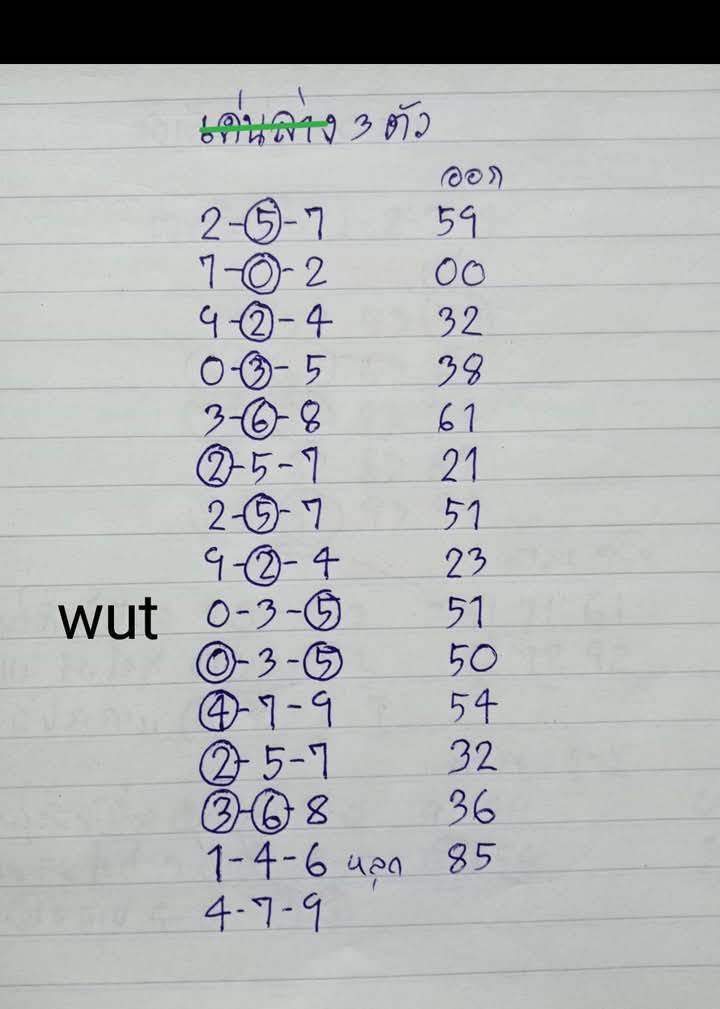 เด่นล่าง 3 ตัว
ออก
2-5-7 59
7-0-2 00
9-2-4 32
0-3-5 38
3-6-8 61
2-5-7 21
2-5-7 51
9-2-4 23
wut 0-3-5 51
0-3-5 50
4-7-9 54
2-5-7 32
3-6-8 36
1-4-6 หลุด 85
4-7-9